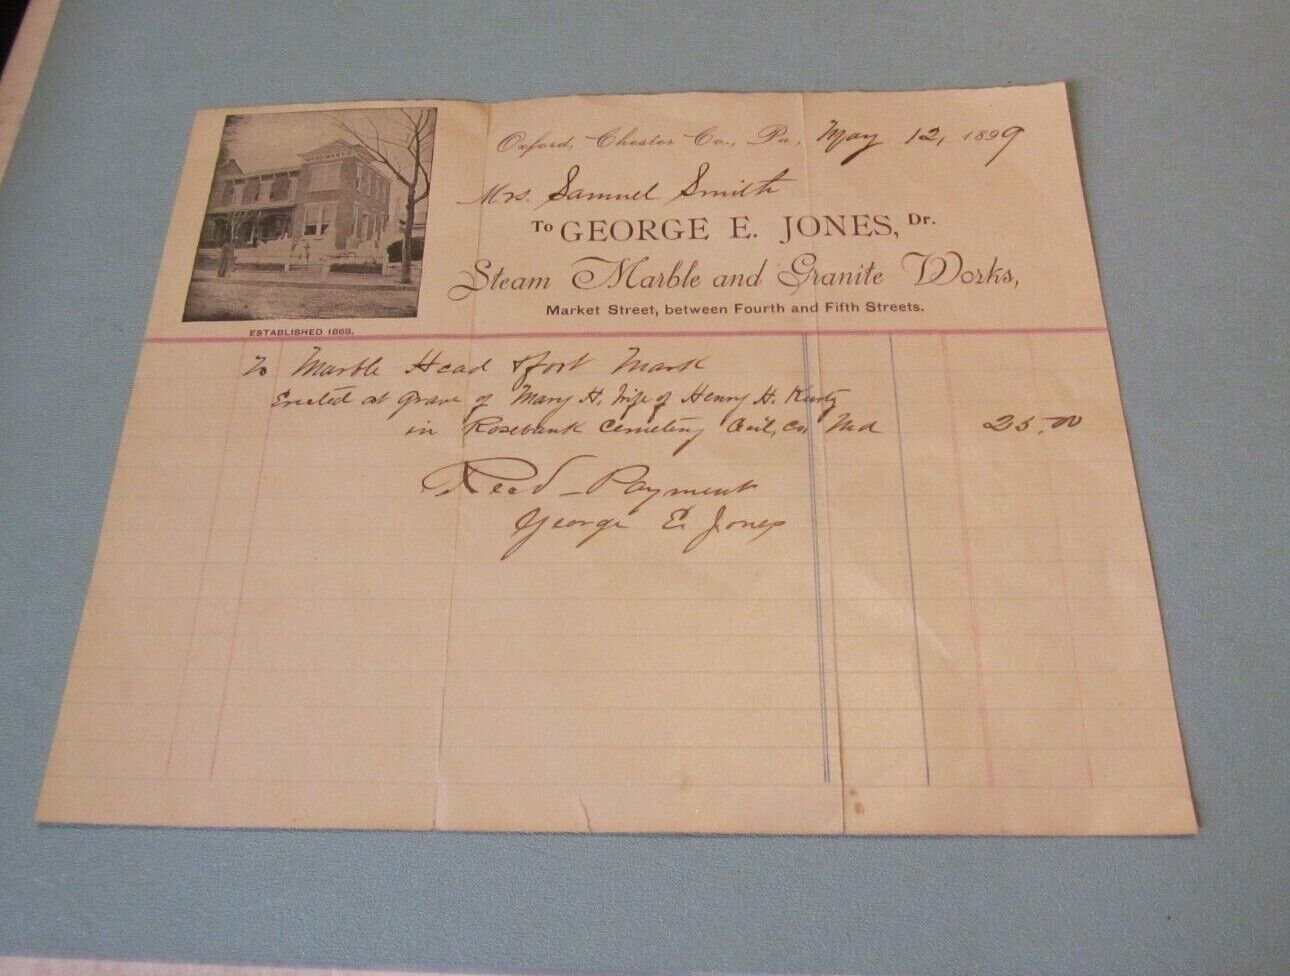 Oxford, Chester Co., Pa., May 12, 1899
Mrs. Samuel Smith
To GEORGE E. JONES, Dr.
Steam Marble and Granite Works,
Market Street, between Fourth and Fifth Streets.
ESTABLISHED 1868.
To Marble Head & foot Mark
Erected at Grave of Mary H. Wife of Henry H. Kurtz
in Rosebank Cemetery Cecil, Co, Md 25.00
Recd Payment
George E. Jones